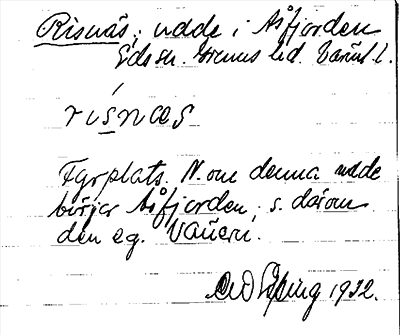 Risnäs, udde i Åsfjorden
Eds sn. Grums hd. Värml. l.
rísnæs
Fyrplats. N. om denna udde
börjar Åsfjorden, s. därom
den eg. Vänern.
1932.